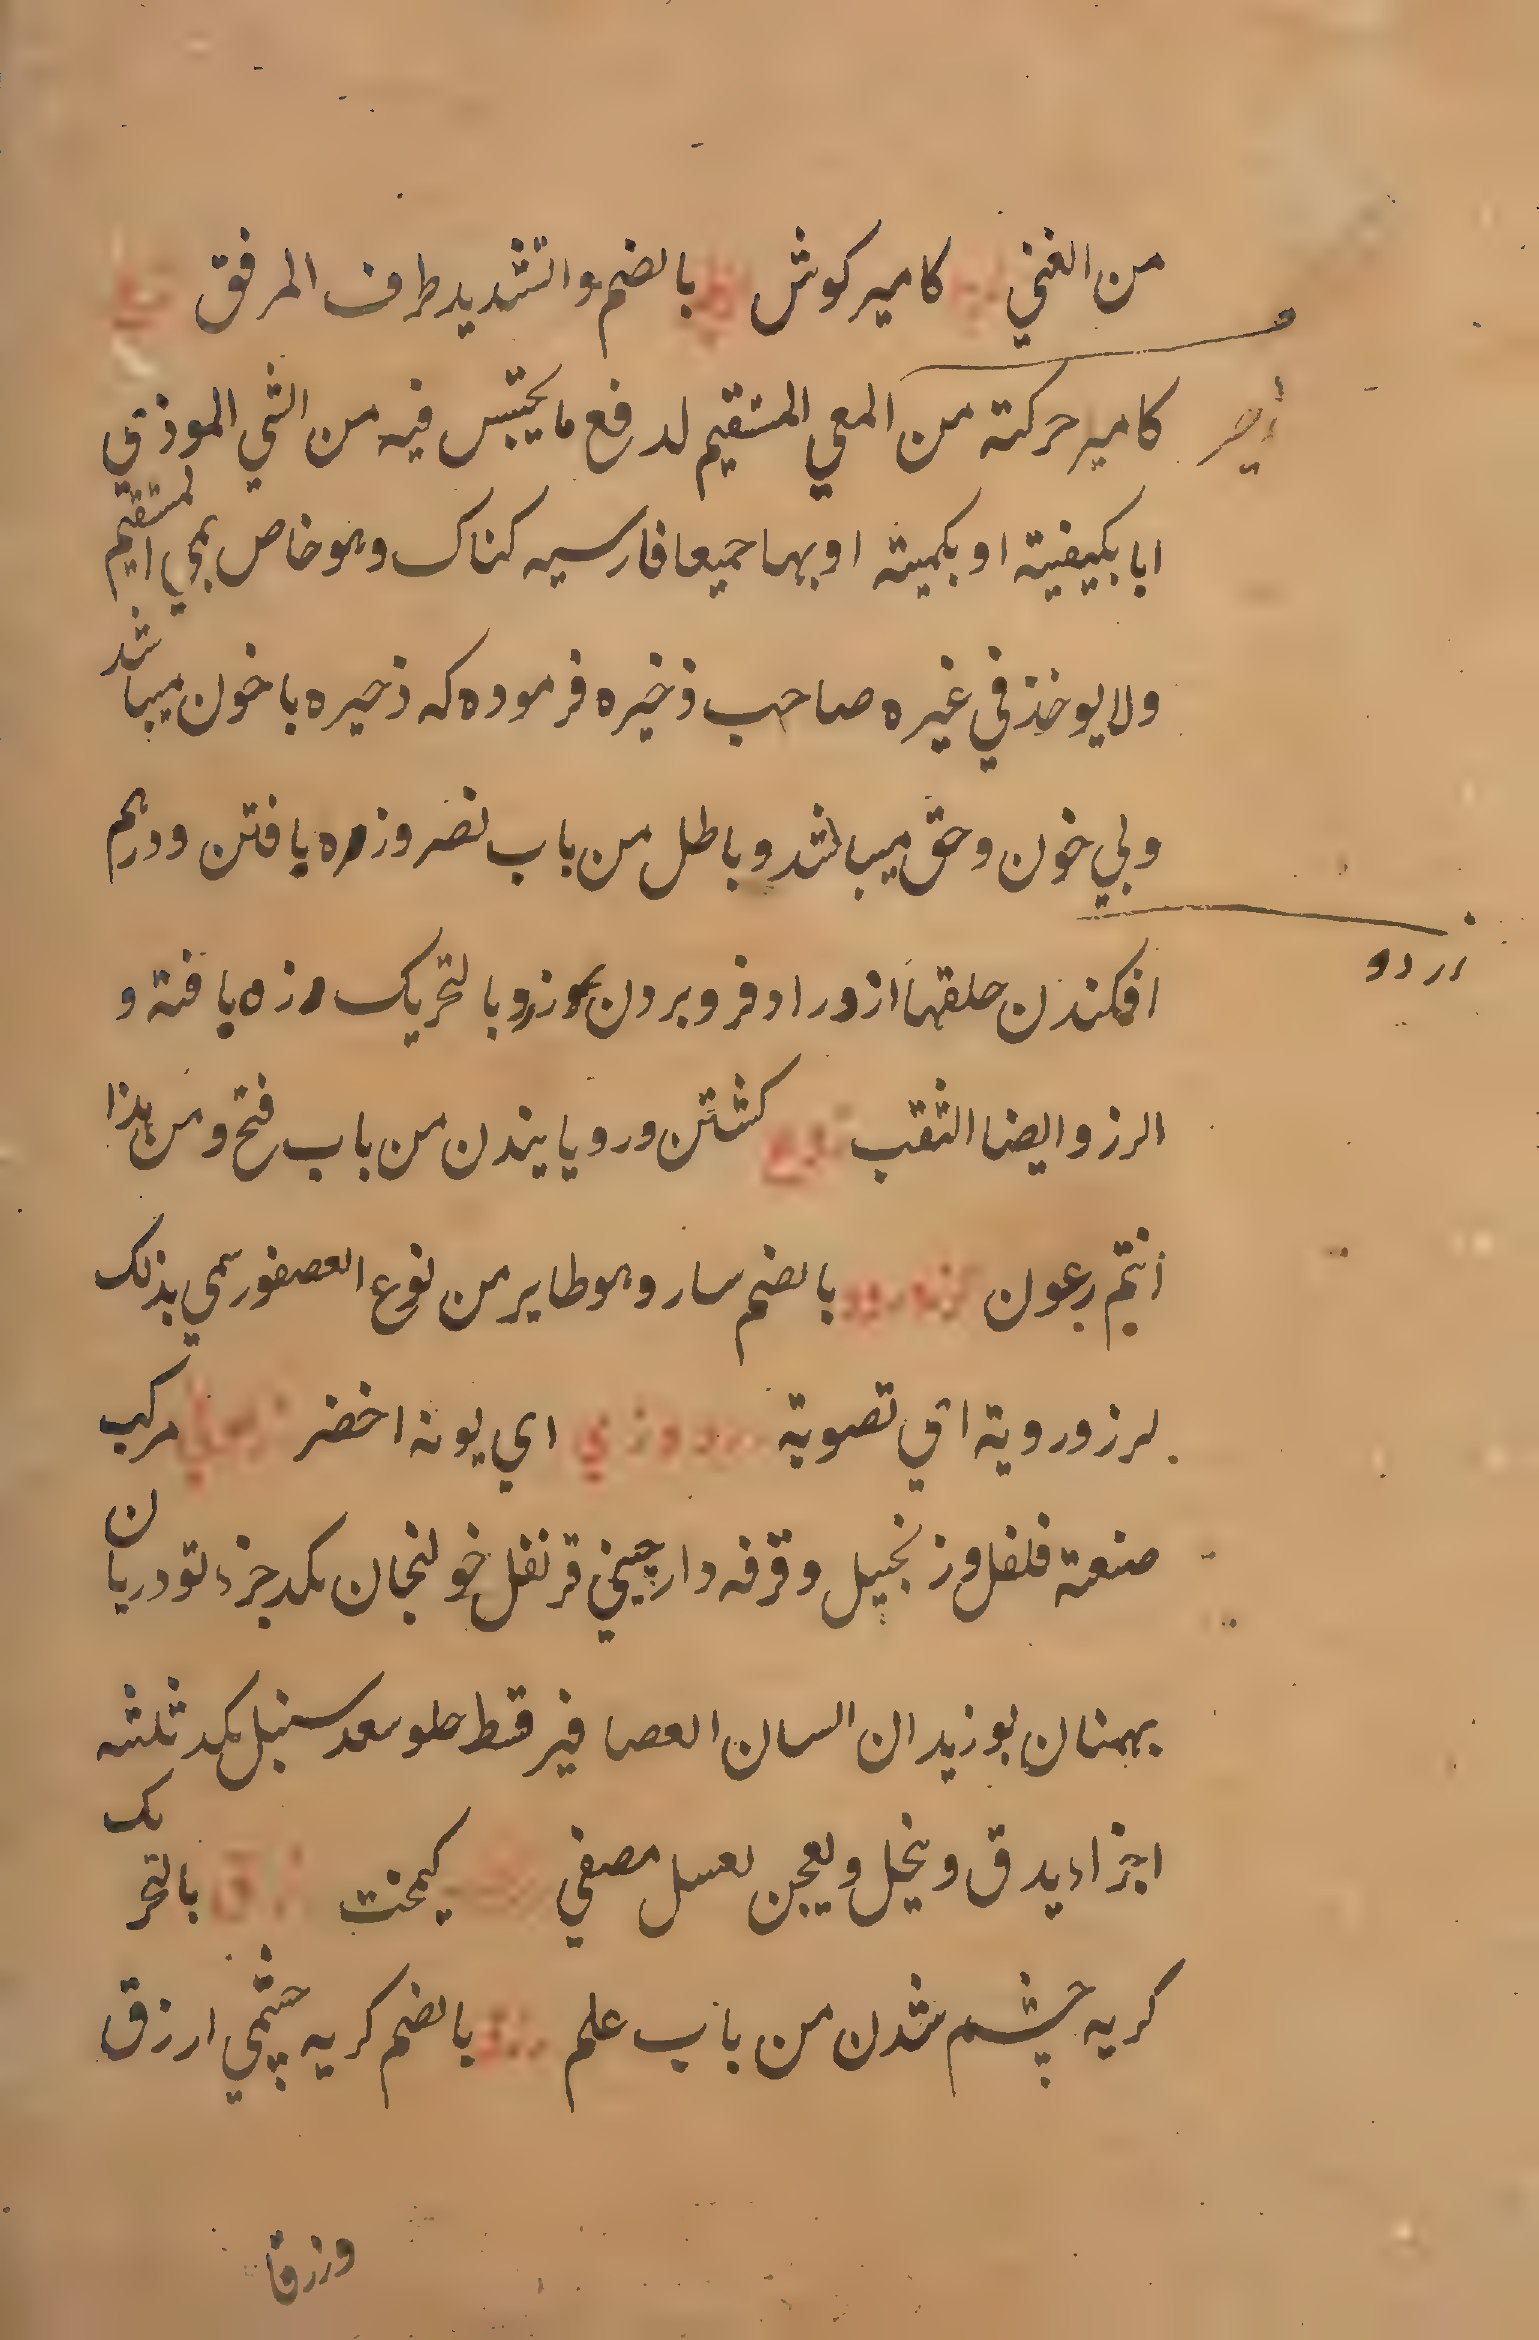 من الغني كامير كوش بالضم والتشديد طرف المرفق
كامير حركته من المعي المستقيم لدفع ما يحتبس فيه من الشي الموذي
ابا بكيفية او بكمية او بهما جميعا فارسيه كناك وهو خاص بمي المستقيم
ولا يوخذ في غيره صاحب ذخيره فرموده كه ذحيره با خون ميباشد
وبي خون وحق ميباشد وباطل من باب نصر وزره يافتن ودرهم
زردو
افكندن حلقها ازورا وفرو بردن بالتحريك زه يافته و
الرز وايضا الثقب زرع كشتن ورويايندن من باب فتح ومن هذا
انتم رعون بالضم سار وهو طاير من نوع العصفور سمي بذلك
لرزوروية اتي تصوية اي يونه اخضر مركب
صنعته فلفل وزنجبيل وقرفه دارچيني قرنفل خولنجان بكد جزء تودريان
بهمنان بوزيدان السان العصافير قسط حلو سعد سنبل بكد ثلثه
اجزاء يدق وينخل ويعجن بعسل مصفي كيمخت زرق بالتحريك
كريه چشم شدن من باب علم بالضم كريه چشمي ازرق
وزرقا